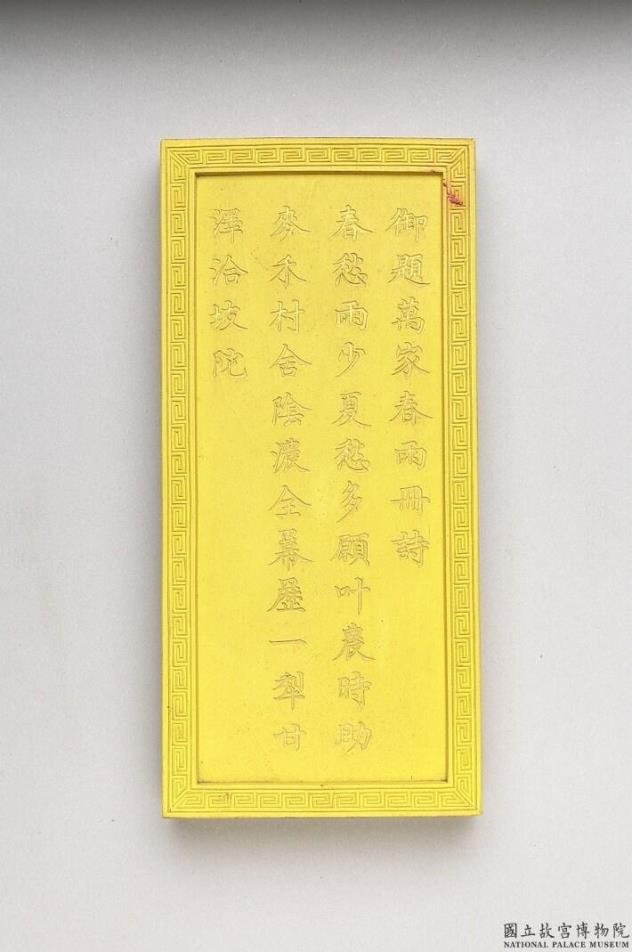 御題萬家春雨冊詩
春愁雨少夏愁多願叶農時助
麥禾村舍陰濃全羃㕓一犂甘
澤洽坡陀
國立故宮博物院
NATIONAL PALACE MUSEUM